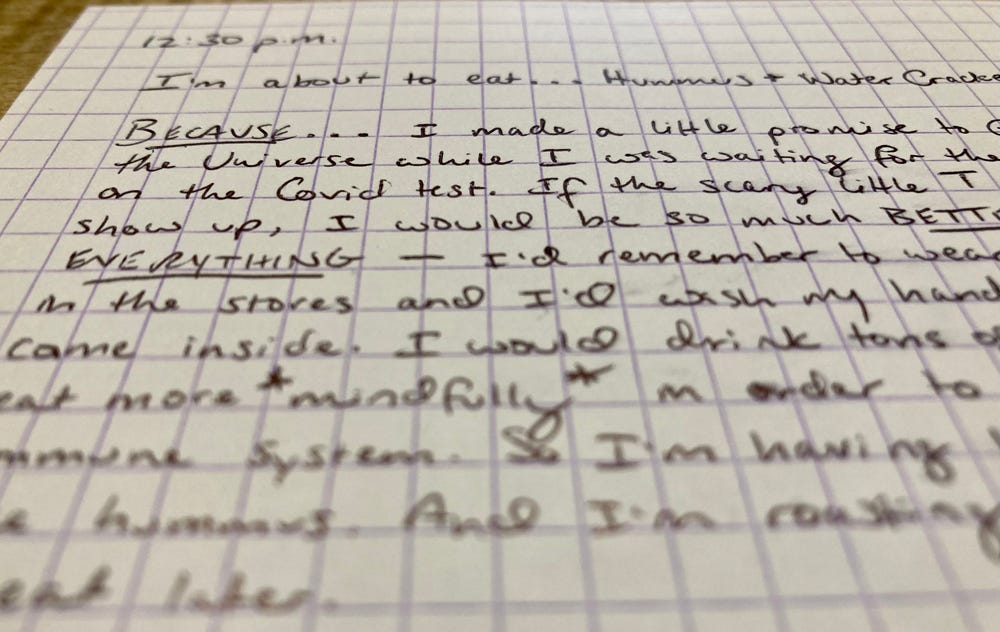 12:30 p.m.
I'm about to eat... Hummus + Water Cracke
BECAUSE.... I made a little promise to
the Universe while I was waiting for the
on the Covid test. If the scary little T
show up, I would be so much BETT
EVERYTHING — I'd remember to wear
in the stores and I'd wash my hand
came inside. I would drink tons of
eat more *mindfully* in order to
mmune system. So I'm having
hummus. And I'm roasting
eat later.